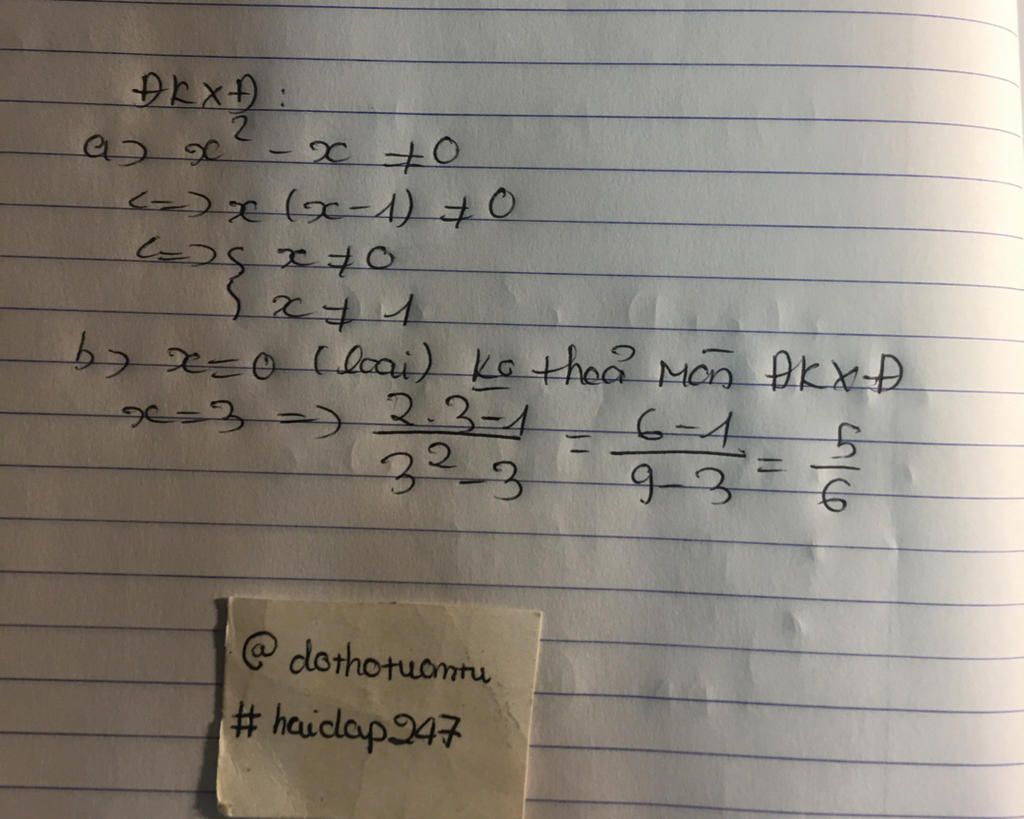 ĐKXĐ:
a) x² - x ≠ 0
<=> x (x-1) ≠ 0
<=> { x ≠ 0
x ≠ 1
b) x=0 (loại) ko thoả mãn ĐKXĐ
x=3 => (2.3-1)/(3²-3) = (6-1)/(9-3) = 5/6
@ dothotuantu
# hoidap247